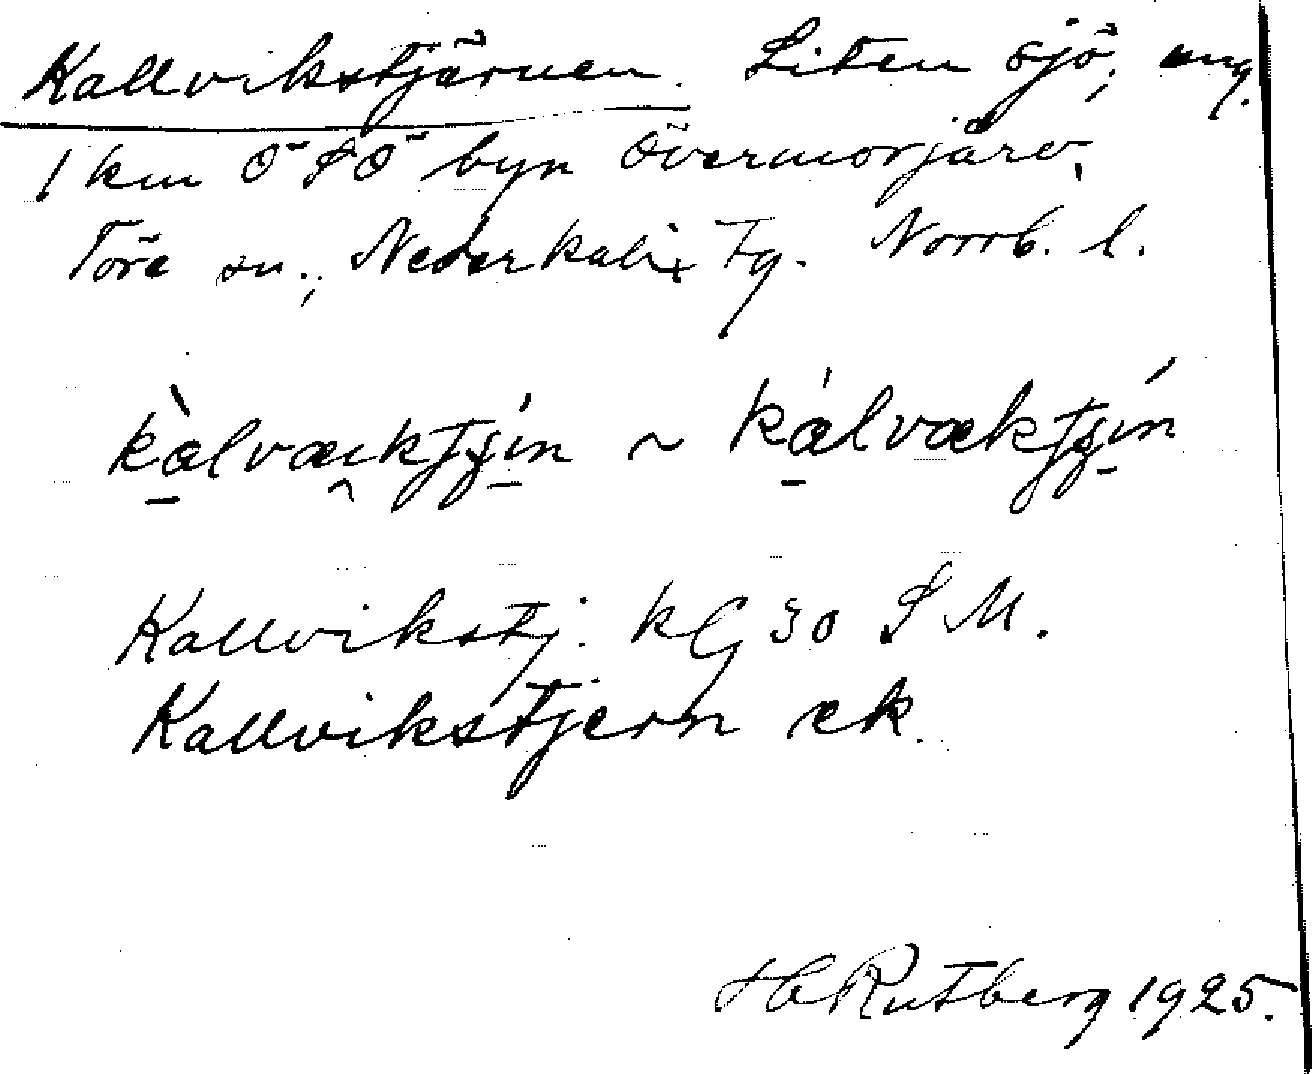 Kallvikstjärnen. Liten sjö, ung.
1 km ÖSÖ byn Övermorjärv,
Töre sn., Nederkalix tg. Norrb. l.
kàlvæiktjín ~ kálvæktjín
Kallvikstj. kG 30 S M.
Kallvikstjern ek.
H Rutberg 1925.